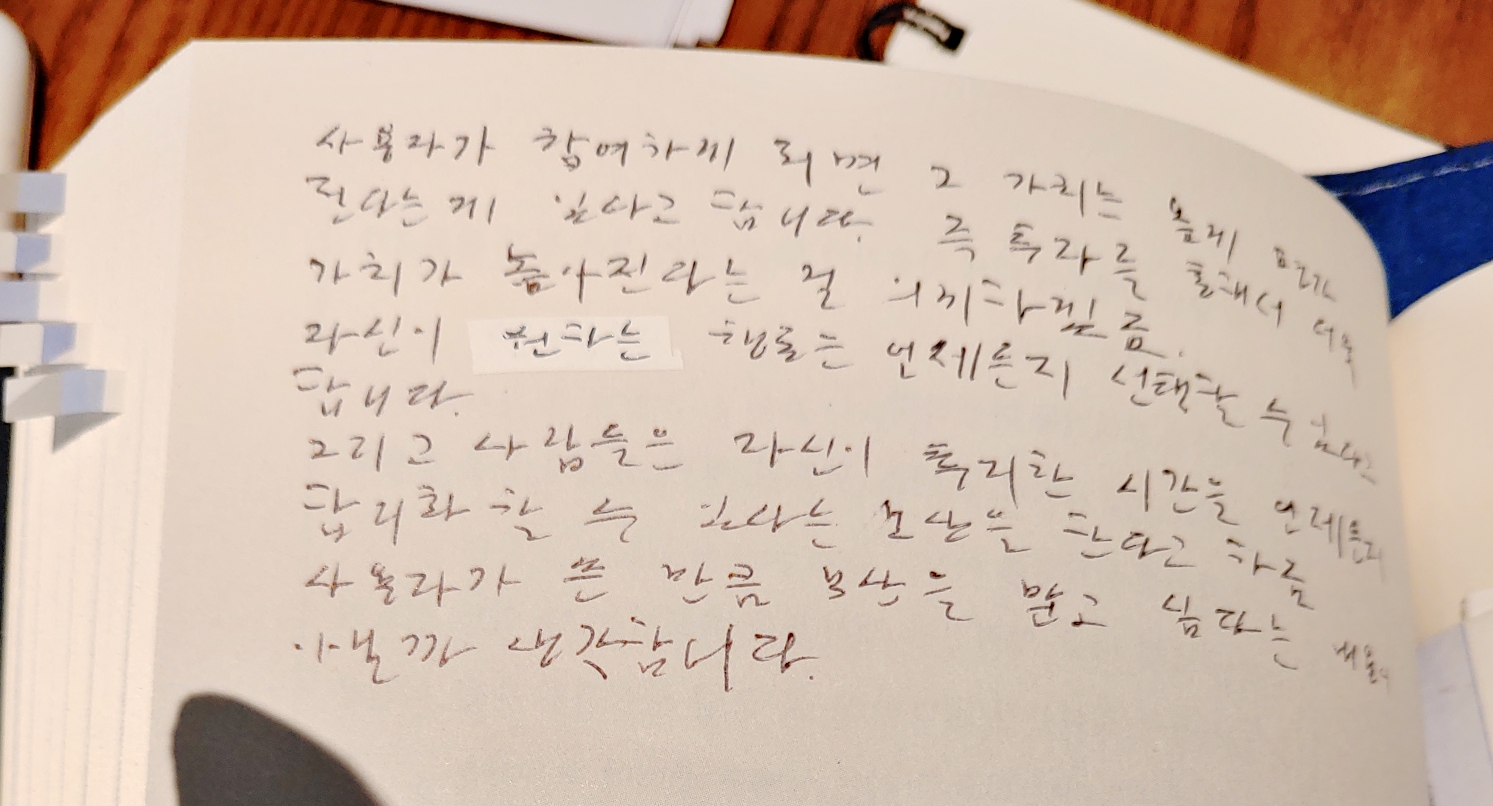 사용자가 참여하게 되면 그 가치는 높게 평가
된다는게 있다고 합니다. 즉 투자를 통해서 더욱
가치가 높아진다는 걸 의미하겠죠.
자신이 원하는 행동은 언제든지 선택할 수 있다고
합니다.
그리고 사람들은 자신이 투자한 시간을 언제든지
합리화 할 수 있다는 보상을 한다고 하죠
사용자가 쓴 만큼 보상을 받고 싶다는
아닐까 생각합니다.